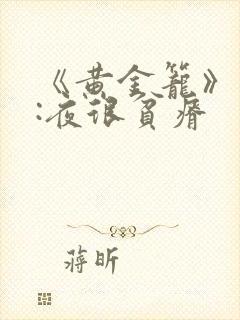 《黄金籠》
:夜很貧瘠
蔣昕